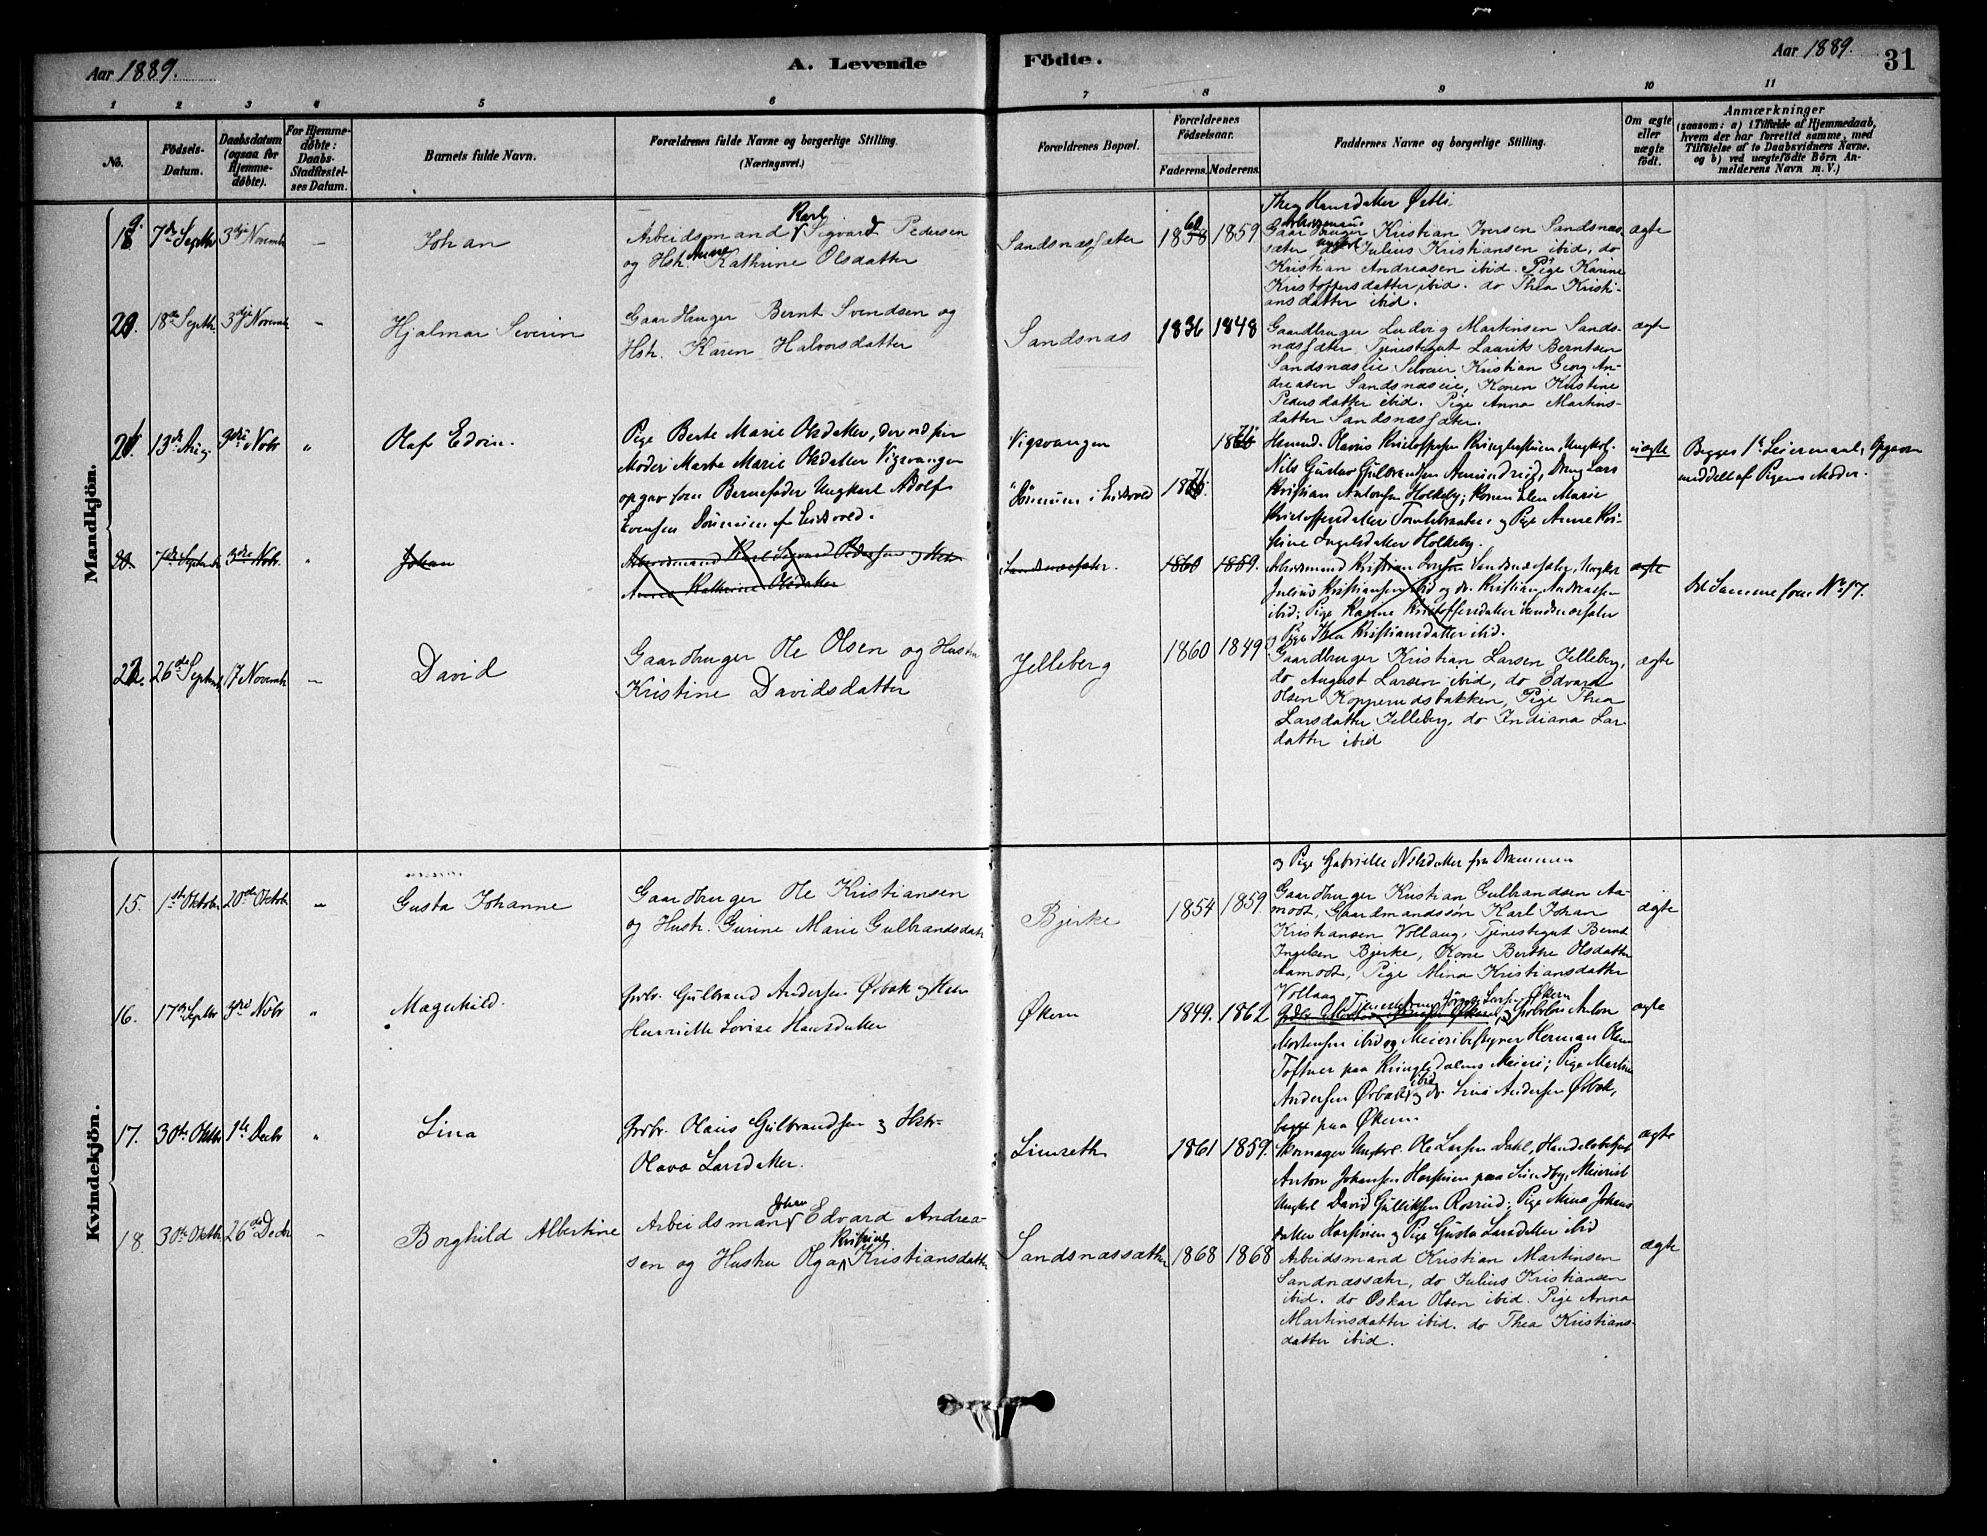 Aar 1889.
A. Levende
Födte.
Aar 1889.
31
1 2 3 4 5 6 7 8 9 10 11
No.
Födsels-
Datum.
Daabsdatum
(ogsaa for
Hjemme-
döbte).
For Hjemme-
döbte:
Daabs-
Stadfæstel-
ses Datum.
Barnets fulde Navn.
Forældrenes fulde Navne og borgerlige Stilling.
(Næringsvei.)
Forældrenes Bopæl.
Forældrenes
Födselsaar.
Faderens. Moderens.
Faddernes Navne og borgerlige Stilling.
Om ægte
eller
uægte
födt.
Anmærkninger
(saasom: a) i Tilfælde af Hjemmedaab,
hvem der har forrettet samme, med
Tilföielse af to Daabsvidners Navne.
og b) ved uægtefödte Börn An-
melderens Navn m. V.)
Mandkjön.
19. 7de Septbr 3die Novembr – Johan
Karl
Arbeidsmand Sigvard Pedersen
og Hstr. Anne Kathrine Olsdatter
Sandsnæssæter 1860 1859
Thea Hansdatter Østli
Arbeidsmand
Gaardbruger Kristian Iversen Sandsnæs-
sæter, do Julius Kristiansen ibid, do
Kristian Andreasen ibid. Pige Karine
Kristoffersdatter ibid. do Thea Kristi-
ansdatter ibid.
ægte
20. 18de Septbr 3die Novembr – Hjalmar Severin
Gaardbruger Bernt Svendsen og
Hstr. Karen Halvorsdatter
Sandsnæs 1836 1848
Gaardbruger Ludvig Martinsen Sands-
næssæter, Tjenestegut Laurits Berntsen
Sandsnæseie, Selveier Kristian Georg An-
dreasen Sandsnæseie, Konen Kristine
Pedersdatter ibid. Pige Anna Martins-
datter Sandsnæssæter.
ægte
21. 13de Aug. 3die Nobr " Olaf Edvin.
Pige Berte Marie Olsdatter, der ved sin
Moder Marte Marie Olsdatter Vigsvangen
opgav som Barnefader Ungkarl Adolf
Evensen Dönnum af Eidsvold.
Vigsvangen
Dönnum i Eidsvold 1871 1871
Husmd. Olavis Kristoffersen Kringlestuen, Ungkarl
Nils Gustav Gulbrandsen Amundrud, Dreng Lars
Kristian Antonsen Holkeby; Konen Elen Marie
Kristoffersdatter Tomtebraaten og Pige Anne Kri-
stine Ingelsdatter Holkeby.
uægte
Begges 1ste Leiermaal, Opgaven
meddelt af Pigens Moder.
20. 7de Septembr 3die Nobr. " Johan
Arbeidsmand Karl Sigvard Pedersen og Hstr.
Anne Kathrine Olsdatter
Sandsnæssæter. 1860 1859.
Arbeidsmand Kristian Iversen Sandsnæssæter, Ungkar
Julius Kristiansen ibid og do. Kristian Andreasen
ibid; Pige Karine Kristoffersdatter Sandsnæssæter
og Pige Thea Kristiansdatter ibid.
ægte
Det Samme som No 17.
22. 26de Septembr 17 Novembr – David
Gaardbruger Ole Olsen og Hustru
Kristine Davidsdatter
Jelleberg 1860 1849
Gaardbruger Kristian Larsen Jelleberg,
do August Larsen ibid, do Edvard
Olsen Kopperudsbakken, Pige Thea
Larsdatter Jelleberg, do Indiana Lar-
datter ibid
ægte
Kvindekjön.
15. 1ste Oktobr 20de Oktobr – Gusta Johanne
Gaardbruger Ole Kristiansen
og Hustr. Gurine Marie Gulbrandsdatr
Bjerke 1854 1859
og Pige Gabrielle Nilsdatter fra Drammen
Gaardbruger Kristian Gulbrandsen Aa-
modt, Gaardmandssøn Karl Johan
Kristiansen Vollaug, Tjenestegut Bernt
Ingelsen Bjerke, Kone Berthe Olsdatter
Aamodt, Pige Mina Kristiansdatter
Vollaug
ægte
16. 17de Septbr 3die Nobr " Magnhild.
Grbr. Gulbrand Andersen Ørbæk og Hstr
Henriette Lovise Hansdatter
Økern 1849. 1862
Larsen Økern
Gaardbr. Anton
Mortensen ibid og Meieribestyrer Herman Olsen
Toftner paa Kringledalens Meieri; Pige Martine
Andersen Ørbæk ibid og do Lina Andersen Ørbæk,
begge paa Økern
ægte
17. 30te Oktbr 1ste Decbr " Lina
Grbr. Olaus Gulbrandsen og Hstr.
Olava Larsdatter.
Linneth 1861 1859.
Skomager Ungkrl. Ole Larsen Dahl, Handelsbetjent
Anton Johansen Horstuen paa Sundby, Meierist
Ungkl David Gulliksen Rosrud; Pige Mina Johans
datter Horstuen og Pige Gusta Larsdatter ibid
ægte
18. 30te Oktbr 26de Decbr – Borghild Albertine
Johan
Arbeidsmand Edvard Andrea-
Kristine
sen og Hustru Olga Kristiansdatter
Sandsnæssæther 1868 1868
Arbeidsmand Kristian Martinsen
Sandnæssæter, do Julius Kristiansen
ibid. do Oskar Olsen ibid. Pige Anna
Martinsdatter ibid. do Thea Kristians-
datter ibid.
ægte